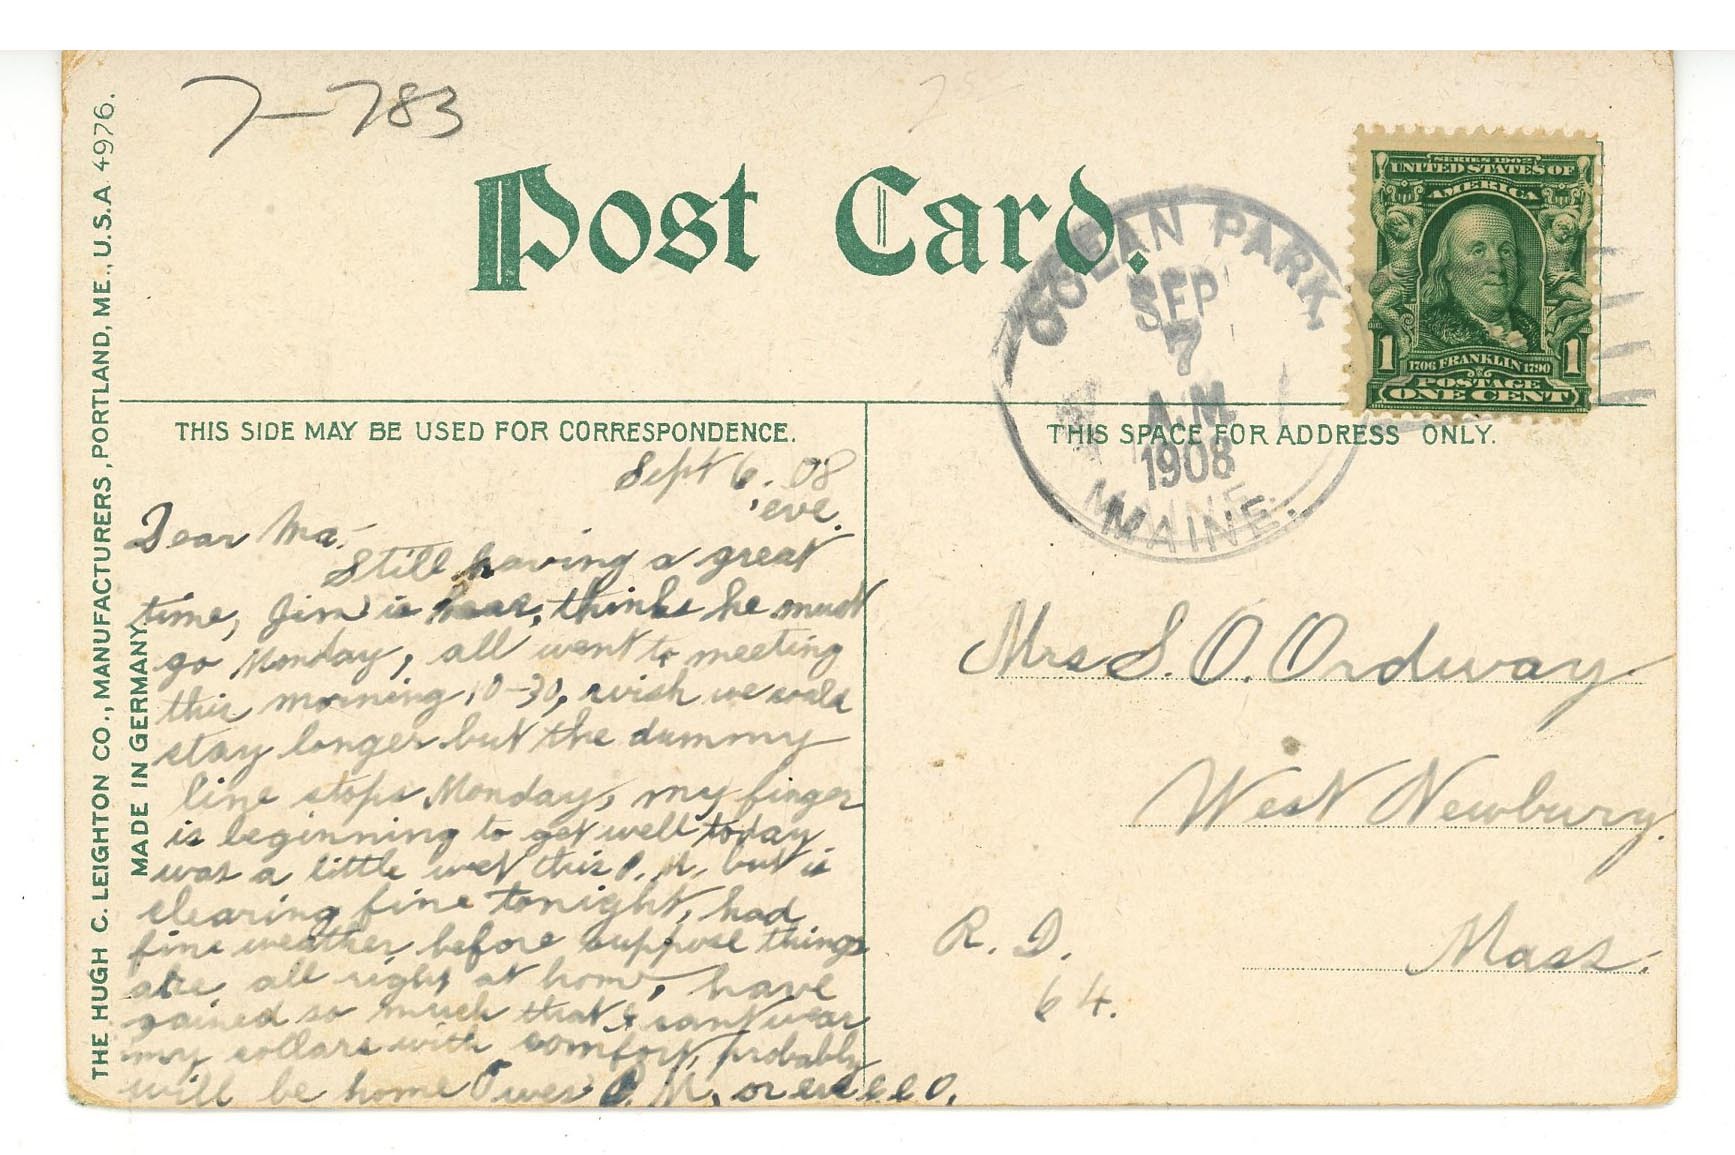 7-783
Post Card.
SERIES 1902
UNITED STATES OF
AMERICA
1706 FRANKLIN 1790
1 1
POSTAGE
ONE CENT
OCEAN PARK,
SEP
7
A.M.
1908
MAINE.
THE HUGH C. LEIGHTON CO., MANUFACTURERS, PORTLAND, ME., U.S.A. 4976.
MADE IN GERMANY
THIS SIDE MAY BE USED FOR CORRESPONDENCE.
Sept 6. 08
eve.
Dear Ma,
Still having a great
time, Jim is hear, thinks he must
go Monday, all went to meeting
this morning 10-30, wish we could
stay longer but the dummy
line stops Monday, my finger
is beginning to get well today
was a little wet this P.M. but is
clearing fine tonight, had
fine weather before suppose things
are all right at home, have
gained so much that I cant wear
my collars with comfort, probably
will be home Tues P.M. or eve
THIS SPACE FOR ADDRESS ONLY.
Mrs S. O. Ordway
West Newbury.
Mass.
R. D.
64.